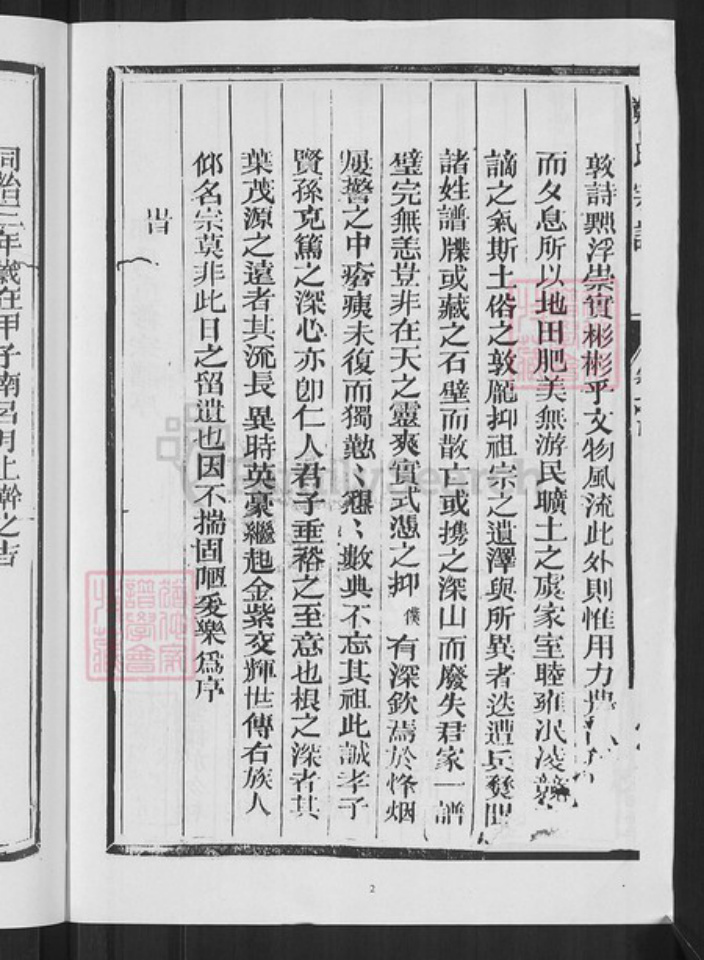 敦詩黜浮崇實彬彬乎文物風流此外則惟用力農
而夕息所以地田肥美無游民曠土之虞家室睦雍泯凌競
謫之氣斯土俗之敦龐抑祖宗之遺澤與所異者迭遭兵燹間
諸姓譜牒或藏之石壁而散亡或携之深山而廢失君家一譜
璧完無恙豈非在天之靈爽實式憑之抑僕有深欽焉於烽烟
屢警之中瘡痍未復而獨懃〻懇〻數典不忘其祖此誠孝子
賢孫克篤之深心亦卽仁人君子垂裕之至意也根之深者其
葉茂源之遠者其流長異時英豪繼起金紫交輝世傳右族人
仰名宗莫非此日之留遺也因不揣固陋爰樂爲序
旹
同治三年歲在甲子南呂月上澣之吉
2